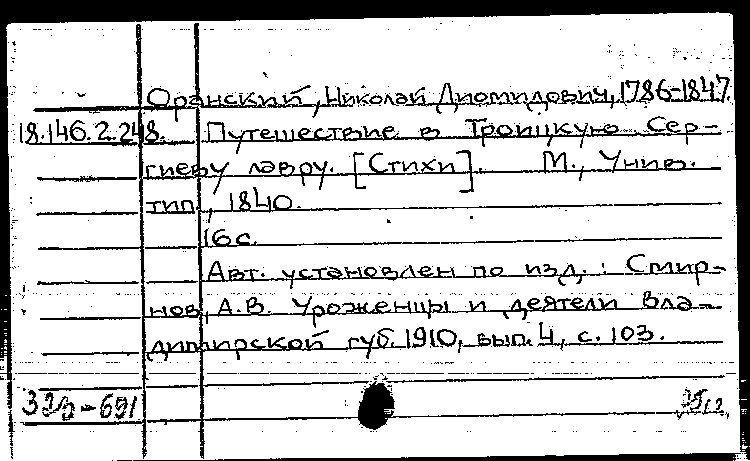 Оранский, Николай Диомидович, 1786-1847.
18.146.2.248. Путешествие в Троицкую Сер-
гиеву лавру. [Стихи]. М., Унив.
тип., 1840.
16 с.
Авт. установлен по изд.: Смир-
нов, А.В. Уроженцы и деятели Вла-
димирской губ. 1910, вып. 4, с. 103.